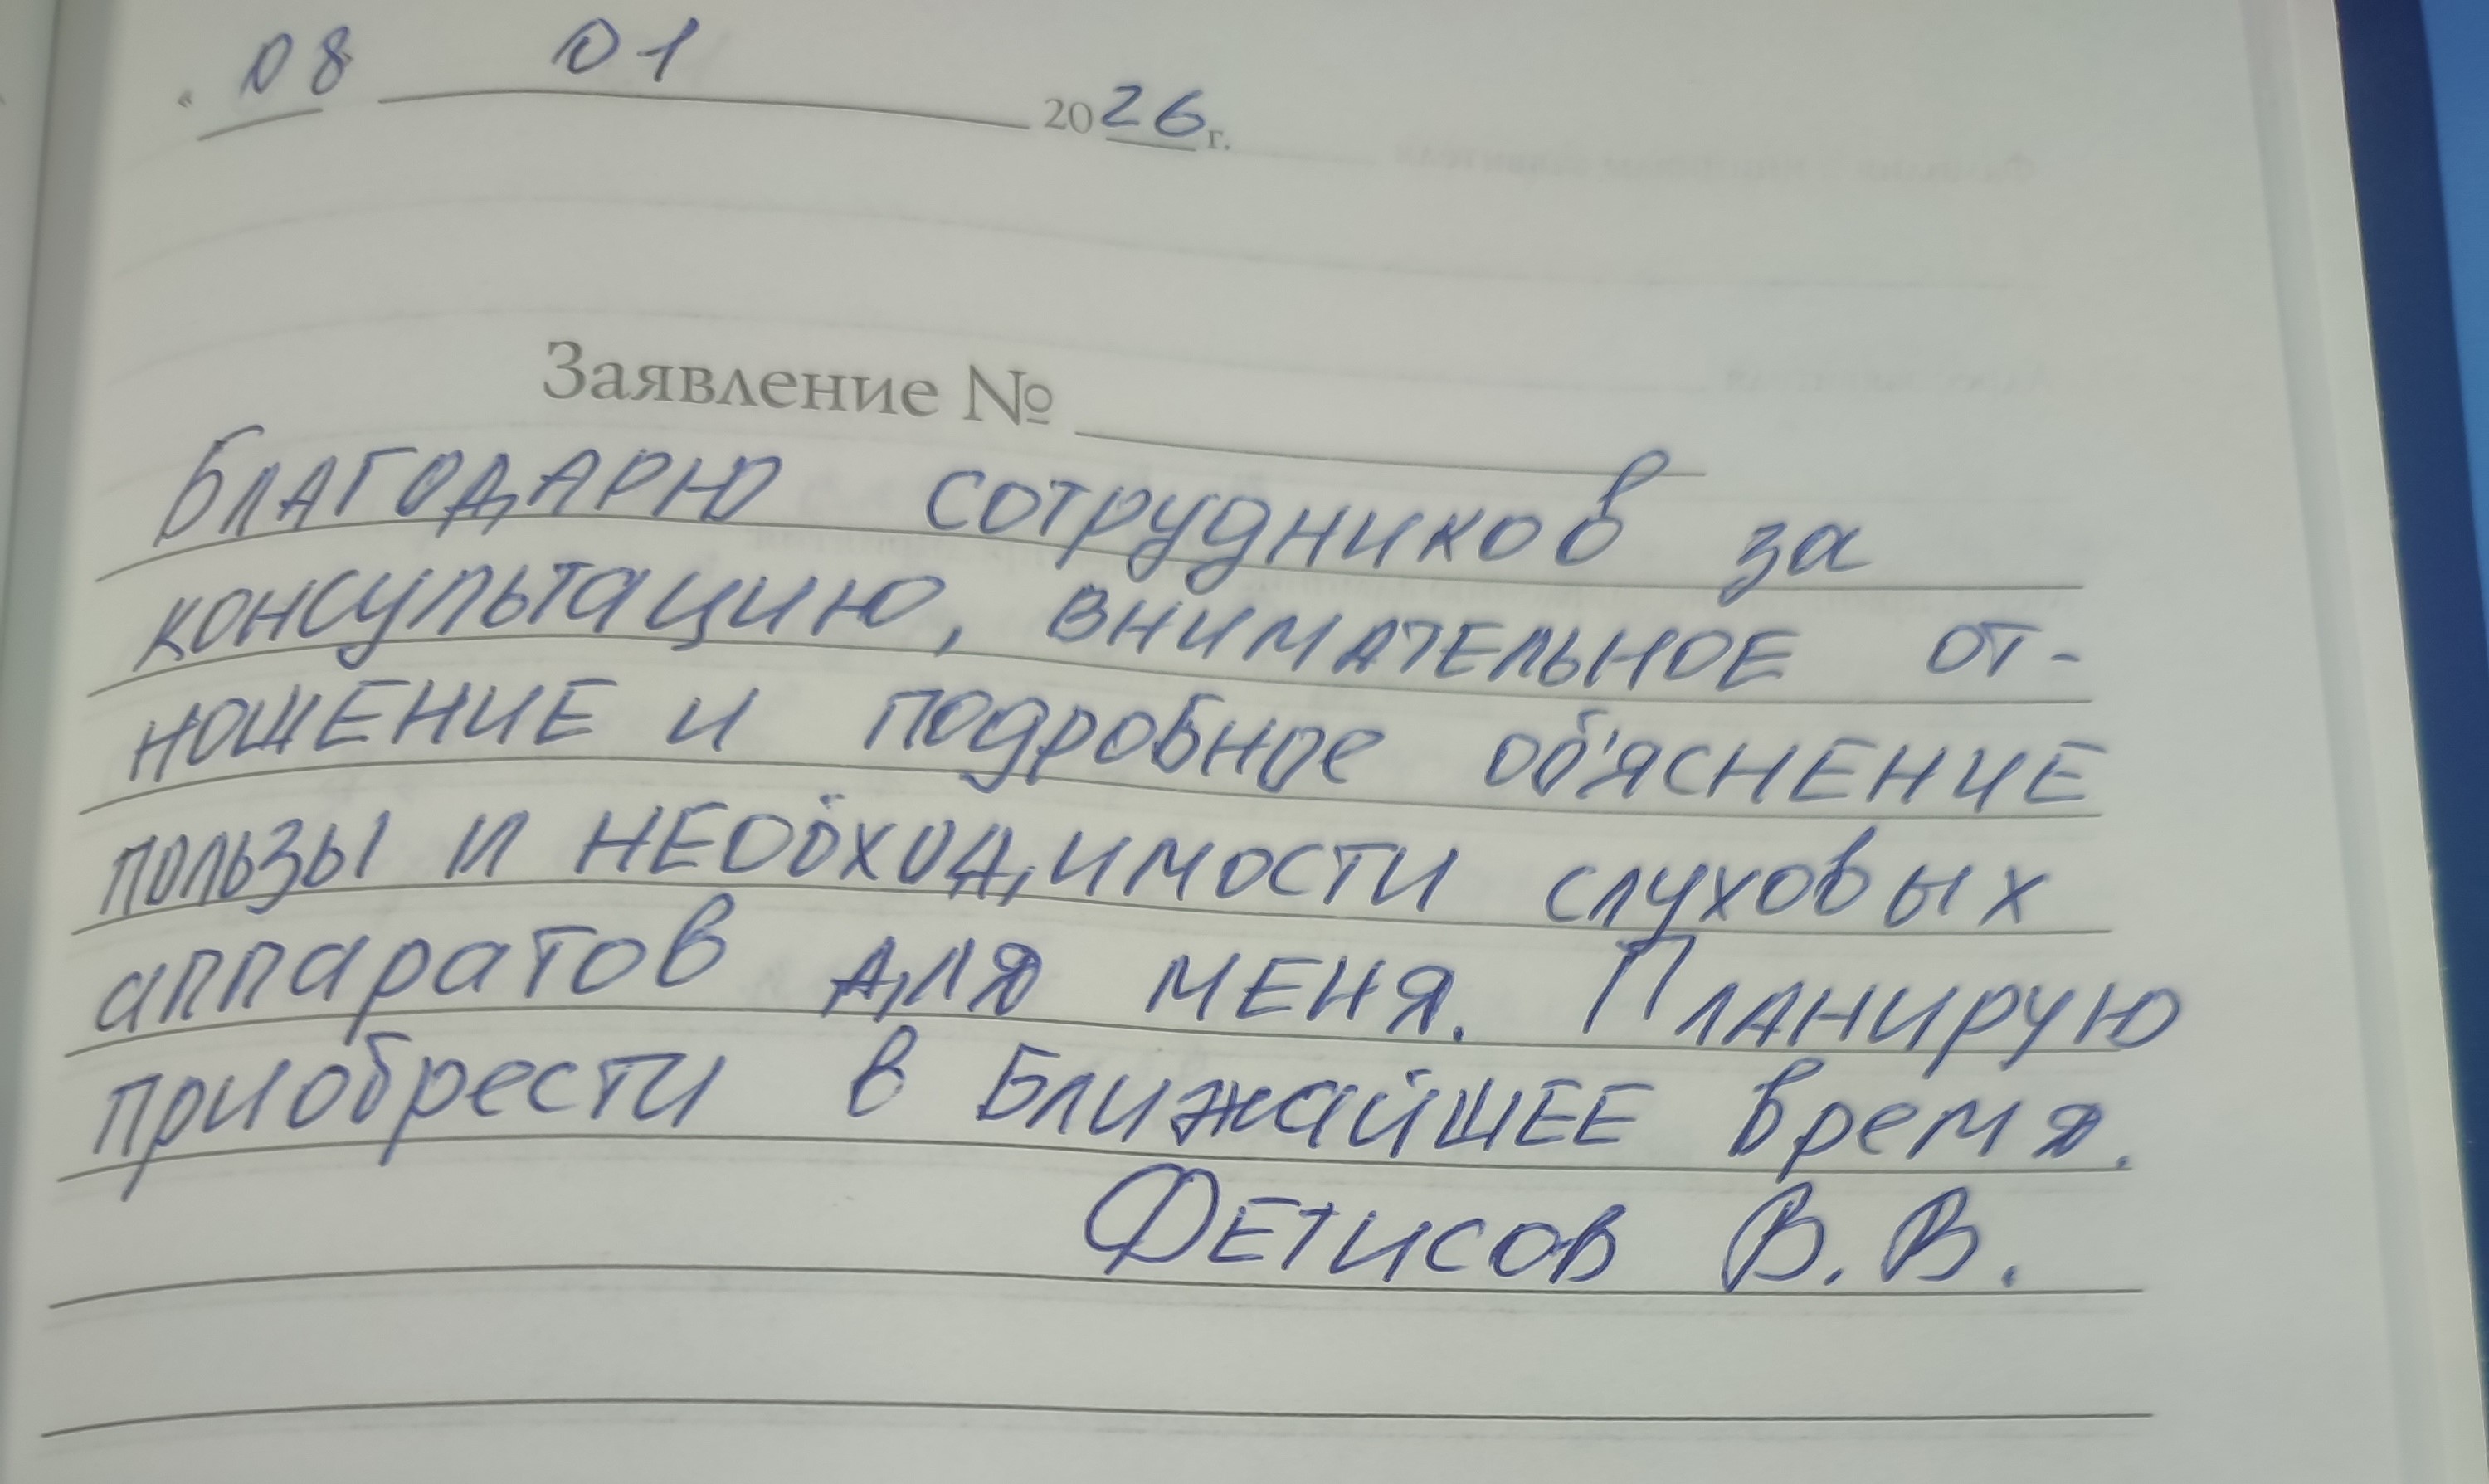 « 08 01 2026 г.
Заявление №
Благодарю сотрудников за
консультацию, внимательное от-
ношение и подробное об'яснение
пользы и необходимости слуховых
аппаратов для меня. Планирую
приобрести в ближайшее время.
Фетисов В. В.